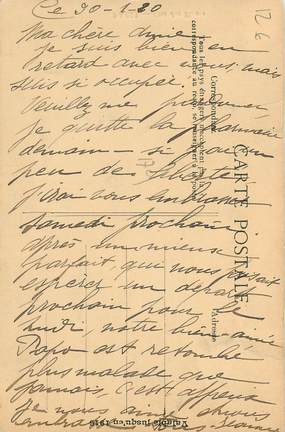 Ce 30-1-20
12 €
Ma chère amie
Je suis bien en
retard avec vous, mais
suis si occupée.
Veuillez me pardonner,
je quitte la
demain - si j'ai un
peu de liberté
j'irai vous embrasser
samedi prochain.
après un mieux
parfait, que nous faisait
espérer un départ
prochain pour le
midi, notre bien aimé
Papo est retombé
plus malade que
jamais, c'est affreux
Je vous aime et vous
embrasse Jeanne
CARTE POSTALE
Tous les pays étrangers n'acceptent pas la
correspondance au recto se renseigner à la poste
Correspondance
Adresse